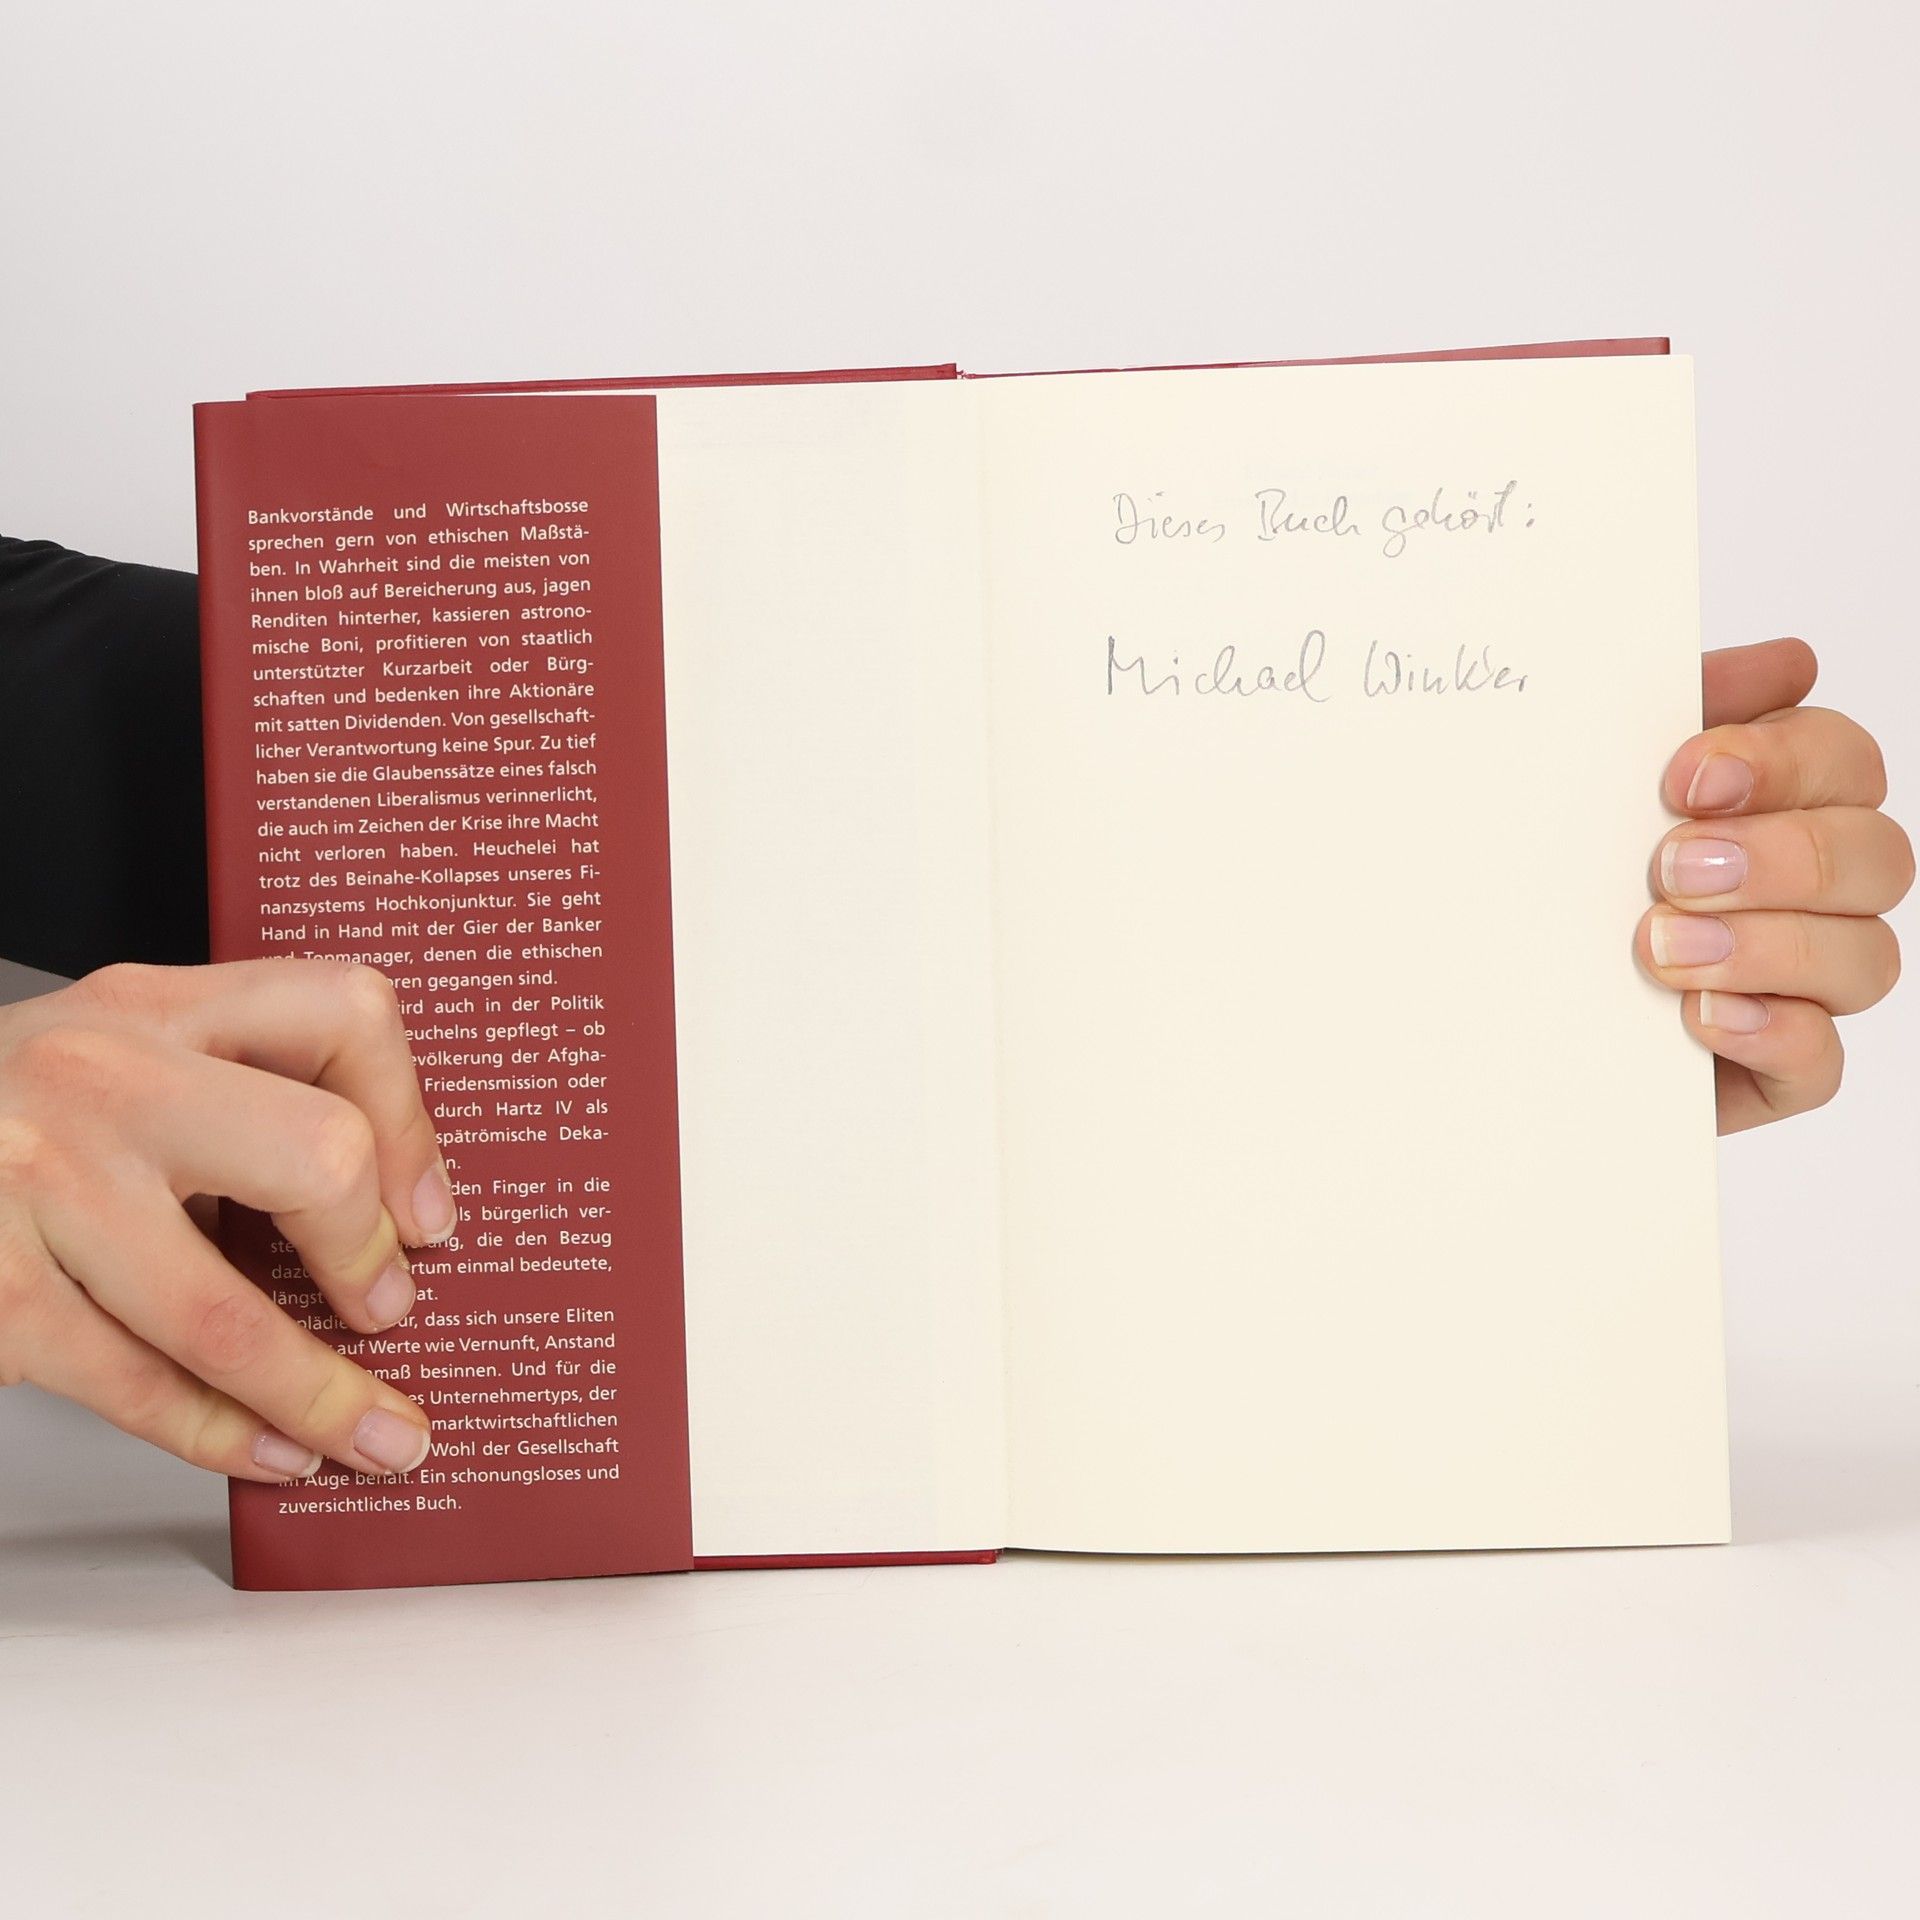 Bankvorstände und Wirtschaftsbosse
sprechen gern von ethischen Maßstä-
ben. In Wahrheit sind die meisten von
ihnen bloß auf Bereicherung aus, jagen
Renditen hinterher, kassieren astrono-
mische Boni, profitieren von staatlich
unterstützter Kurzarbeit oder Bürg-
schaften und bedenken ihre Aktionäre
mit satten Dividenden. Von gesellschaft-
licher Verantwortung keine Spur. Zu tief
haben sie die Glaubenssätze eines falsch
verstandenen Liberalismus verinnerlicht,
die auch im Zeichen der Krise ihre Macht
nicht verloren haben. Heuchelei hat
trotz des Beinahe-Kollapses unseres Fi-
nanzsystems Hochkonjunktur. Sie geht
Hand in Hand mit der Gier der Banker
und Topmanager, denen die ethischen
gegangen sind.
auch in der Politik
gepflegt – ob
der Afgha-
Friedensmission oder
durch Hartz IV als
spätrömische Deka-
den Finger in die
bürgerlich ver-
die den Bezug
einmal bedeutete,
längst
dass sich unsere Eliten
auf Werte wie Vernunft, Anstand
besinnen. Und für die
Unternehmertyps, der
marktwirtschaftlichen
Wohl der Gesellschaft
im Auge behält. Ein schonungsloses und
zuversichtliches Buch.
Dieses Buch gehört:
Michael Winkler